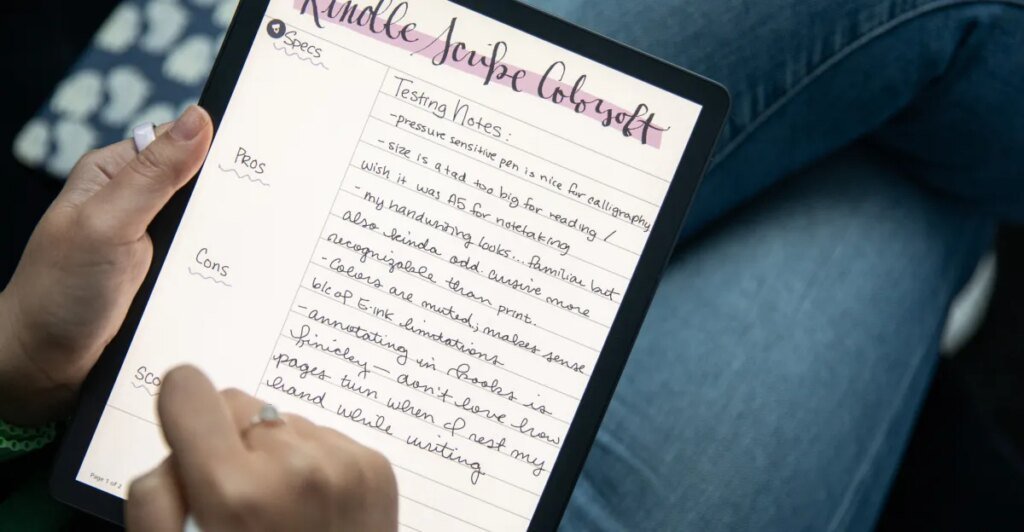 Kindle Scribe Colorsoft
Specs
Pros
Cons
Testing Notes:
-pressure sensitive pen is nice for calligraphy
- size is a tad too big for reading /
wish it was A5 for notetaking
- my handwriting looks... familiar but
also kinda odd. cursive more
recognizable than print.
- Colors are muted; makes sense
b/c of E-ink limitations
- annotating in ebooks is
finicky — don't love how
pages turn when I rest my
hand while writing
Page 1 of 2